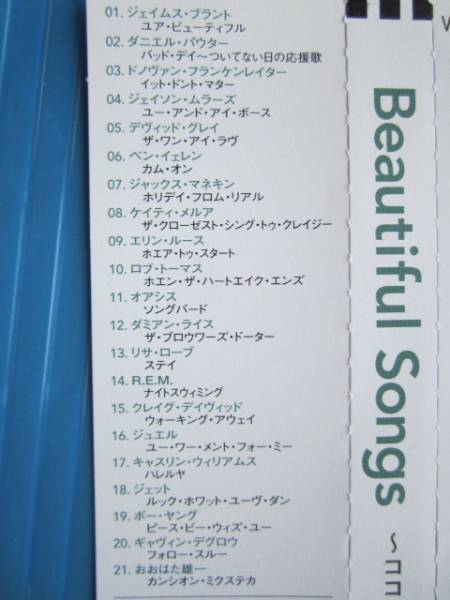 01. ジェイムス・ブラント
ユア・ビューティフル
02. ダニエル・パウター
バッド・デイ〜ついてない日の応援歌
03. ドノヴァン・フランケンレイター
イット・ドント・マター
04. ジェイソン・ムラーズ
ユー・アンド・アイ・ボース
05. デヴィッド・グレイ
ザ・ワン・アイ・ラヴ
06. ベン・イェレン
カム・オン
07. ジャックス・マネキン
ホリデイ・フロム・リアル
08. ケイティ・メルア
ザ・クローゼスト・シング・トゥ・クレイジー
09. エリン・ルース
ホエア・トゥ・スタート
10. ロブ・トーマス
ホエン・ザ・ハートエイク・エンズ
11. オアシス
ソングバード
12. ダミアン・ライス
ザ・ブロウワーズ・ドーター
13. リサ・ローブ
ステイ
14. R.E.M.
ナイトスウィミング
15. クレイグ・デイヴィッド
ウォーキング・アウェイ
16. ジュエル
ユー・ワー・メント・フォー・ミー
17. キャスリン・ウィリアムス
ハレルヤ
18. ジェット
ルック・ホワット・ユーヴ・ダン
19. ボー・ヤング
ピース・ビー・ウィズ・ユー
20. ギャヴィン・デグロウ
フォロー・スルー
21. おおはた雄一
カンシオン・ミクステカ
Beautiful Songs 〜ココ